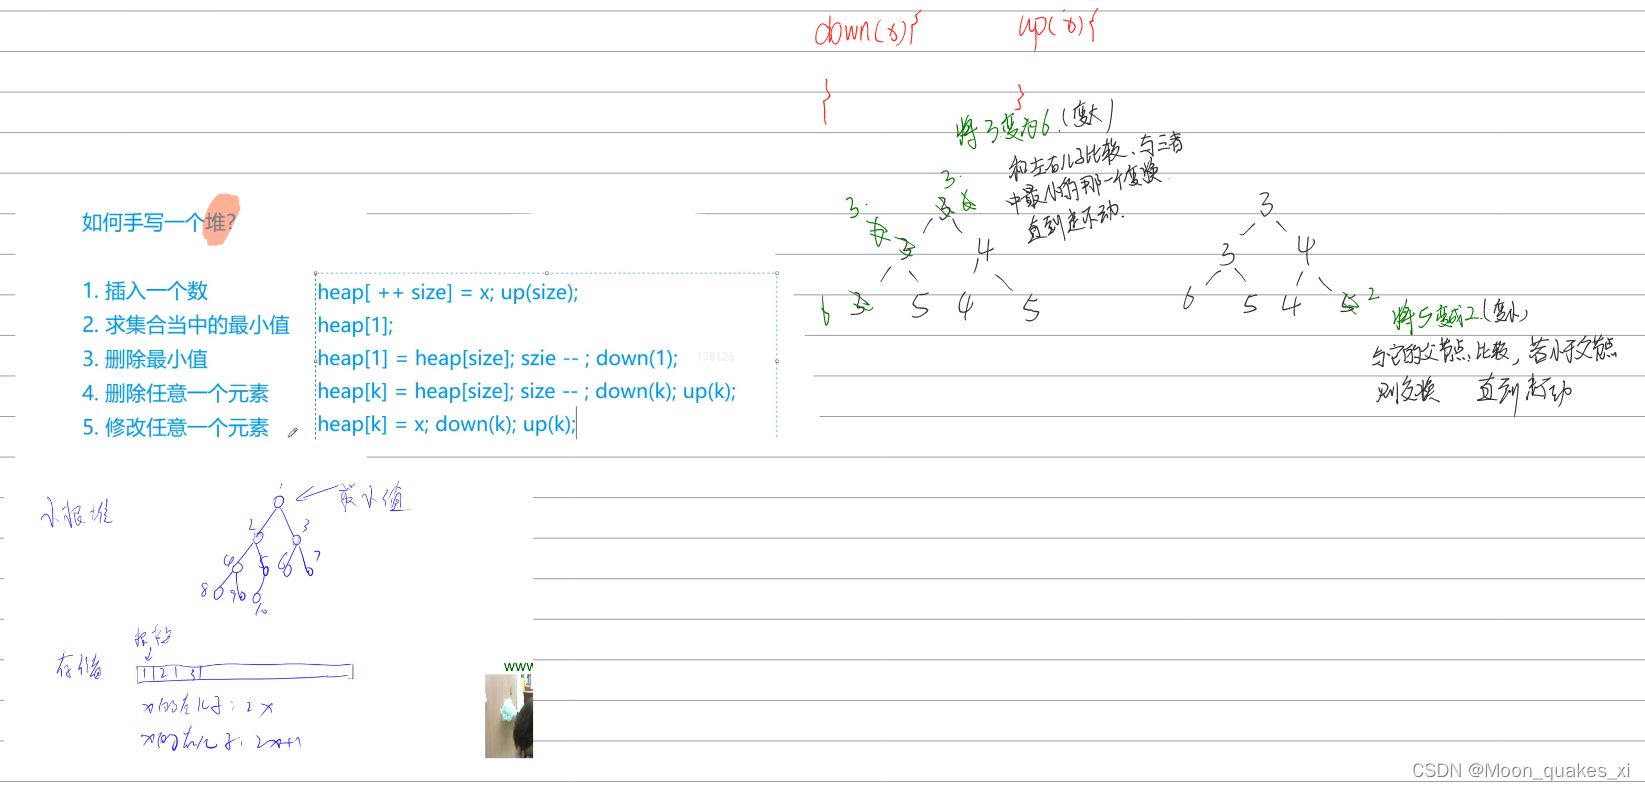 down(x){
}
up(x){
}
将3变为6.(变大)
和左右儿子比较、与三者
中最小的那一个变换
直到走不动.
3.
3.
3 6
6 3 4
6 3 5 4 5
3
3 4
6 5 4 5 2
将5变成2.(变小)
与它的父节点比较，若小于父节点
则交换 直到走不动
如何手写一个堆?
1. 插入一个数
heap[ ++ size] = x; up(size);
2. 求集合当中的最小值
heap[1];
3. 删除最小值
heap[1] = heap[size]; szie -- ; down(1);
178126
4. 删除任意一个元素
heap[k] = heap[size]; size -- ; down(k); up(k);
5. 修改任意一个元素
heap[k] = x; down(k); up(k);
小根堆
最小值
1
2 3
4 5 6 7
8 9 10
存储
根节点
1 2 3
x的左儿子: 2x
x的右儿子: 2x+1
www
CSDN @Moon_quakes_xi